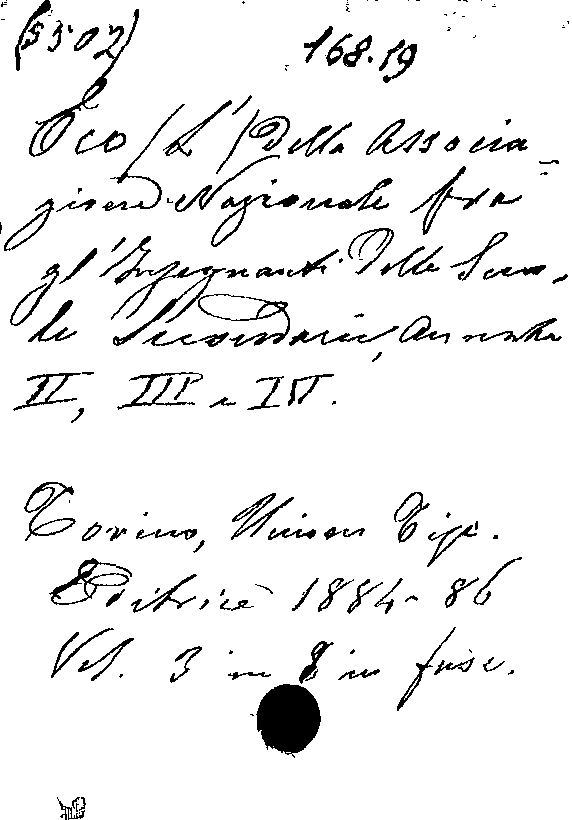 (5502) 168.19
Eco (L') della Associa-
zione Nazionale fra
gl'Insegnanti delle Scuo-
le Secondarie, Annata
II, III e IV.
Torino, Unione Tip.
Editrice 1884-86
Vol. 3 in 8 in fasc.